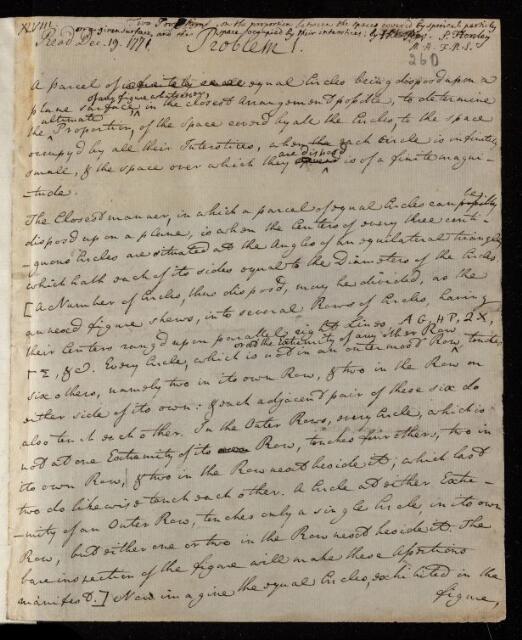 XVIII. Two Problems, on the proportion between the spaces covered by spherical particles
on a given surface, and the space occupied by their interstices. by S. Horsley
Read Dec. 19. 1771. Problem 1. M. A. F.R.S.
260
A parcel of equal Circles being disposed upon a
plane surface of any figure whatsoever, in the closest arrangement possible, to determine
the ultimate Proportion, of the space cover'd by all the Circles, to the space
occupy'd by all their Interstices, when each Circle is infinitely
small, & the space over which they are disposed is of a finite magni-
-tude.
The Closest manner, in which a parcel of equal Circles can be
disposed upon a plane, is when the Centers of every three conti-
-guous Circles are situated at the Angles of an equilateral triangle,
which hath each of its sides equal to the Diameters of the Circles
[A Number of Circles, thus disposed, may be divided, as the
annexd figure shews, into several Rows of Circles, having
their Centers ranged upon parallel right Lines, AG, HP, QX,
ΓΣ, &c. Every Circle, which is not in an outermost Row, or at the Extremity of any other Row, touches
six others, namely two in its own Row, & two in the Row on
either side of its own: & each adjacent pair of these six do
also touch each other. In the Outer Rows, every Circle, which is
not at one Extremity of its Row, touches four others, two in
its own Row, & two in the Row next beside it; which last
two do likewise touch each other. A Circle at either Extre-
-mity of an Outer Row, touches only a single Circle, in its own
Row, but either one or two in the Row next beside it. The
bare inspection of the figure will make these assertions
manifest.] Now imagine the equal Circles, exhibited in the
figure,